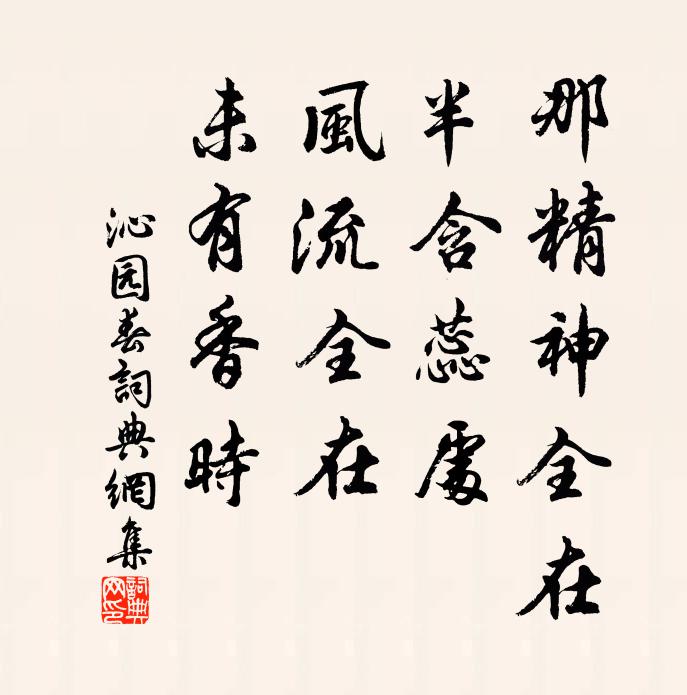 那精神全在
半含蕊處
風流全在
未有香時
沁园春詞典網集
詞典網印